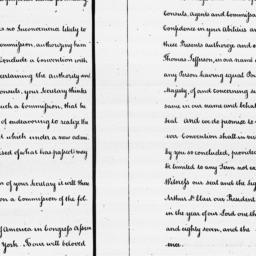 is no Inconvenience likely to
Commission, authorizing him
Conclude a Convention with
ascertaining the Authority and
Consuls, your Secretary thinks
such a Commission, that he
of endeavouring to realize the
which under a new
of what has passed may
of your Secretary it will then
on a Commission of the fol
of America in Congress Assem
York. To our well beloved
Consuls, Agents and Commissa
Confidence in your Abilities and
these Presents authorize and
Thomas Jefferson, in our name
any Person having equal Pow
Majesty, of and concerning
same in our Name and behalf
Seal. And we do promise to
ver Convention shall in
by you so concluded, provided
be limited to any Term not ex
Witness our Seal and the Sig
Arthur St. Clair our President
in the year of our Lord one th
and eighty seven, and the
ence.